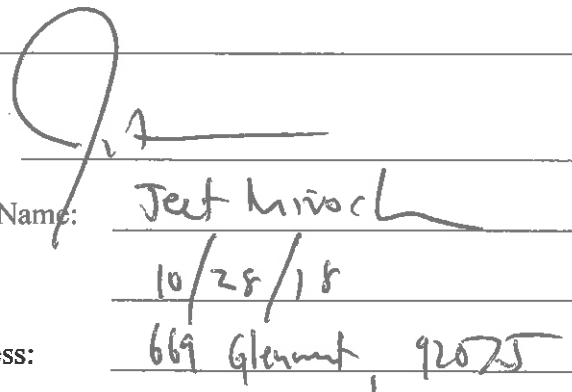 Name: Jeet Mivoch
10/28/18
ess: 669 Glenmont, 92075